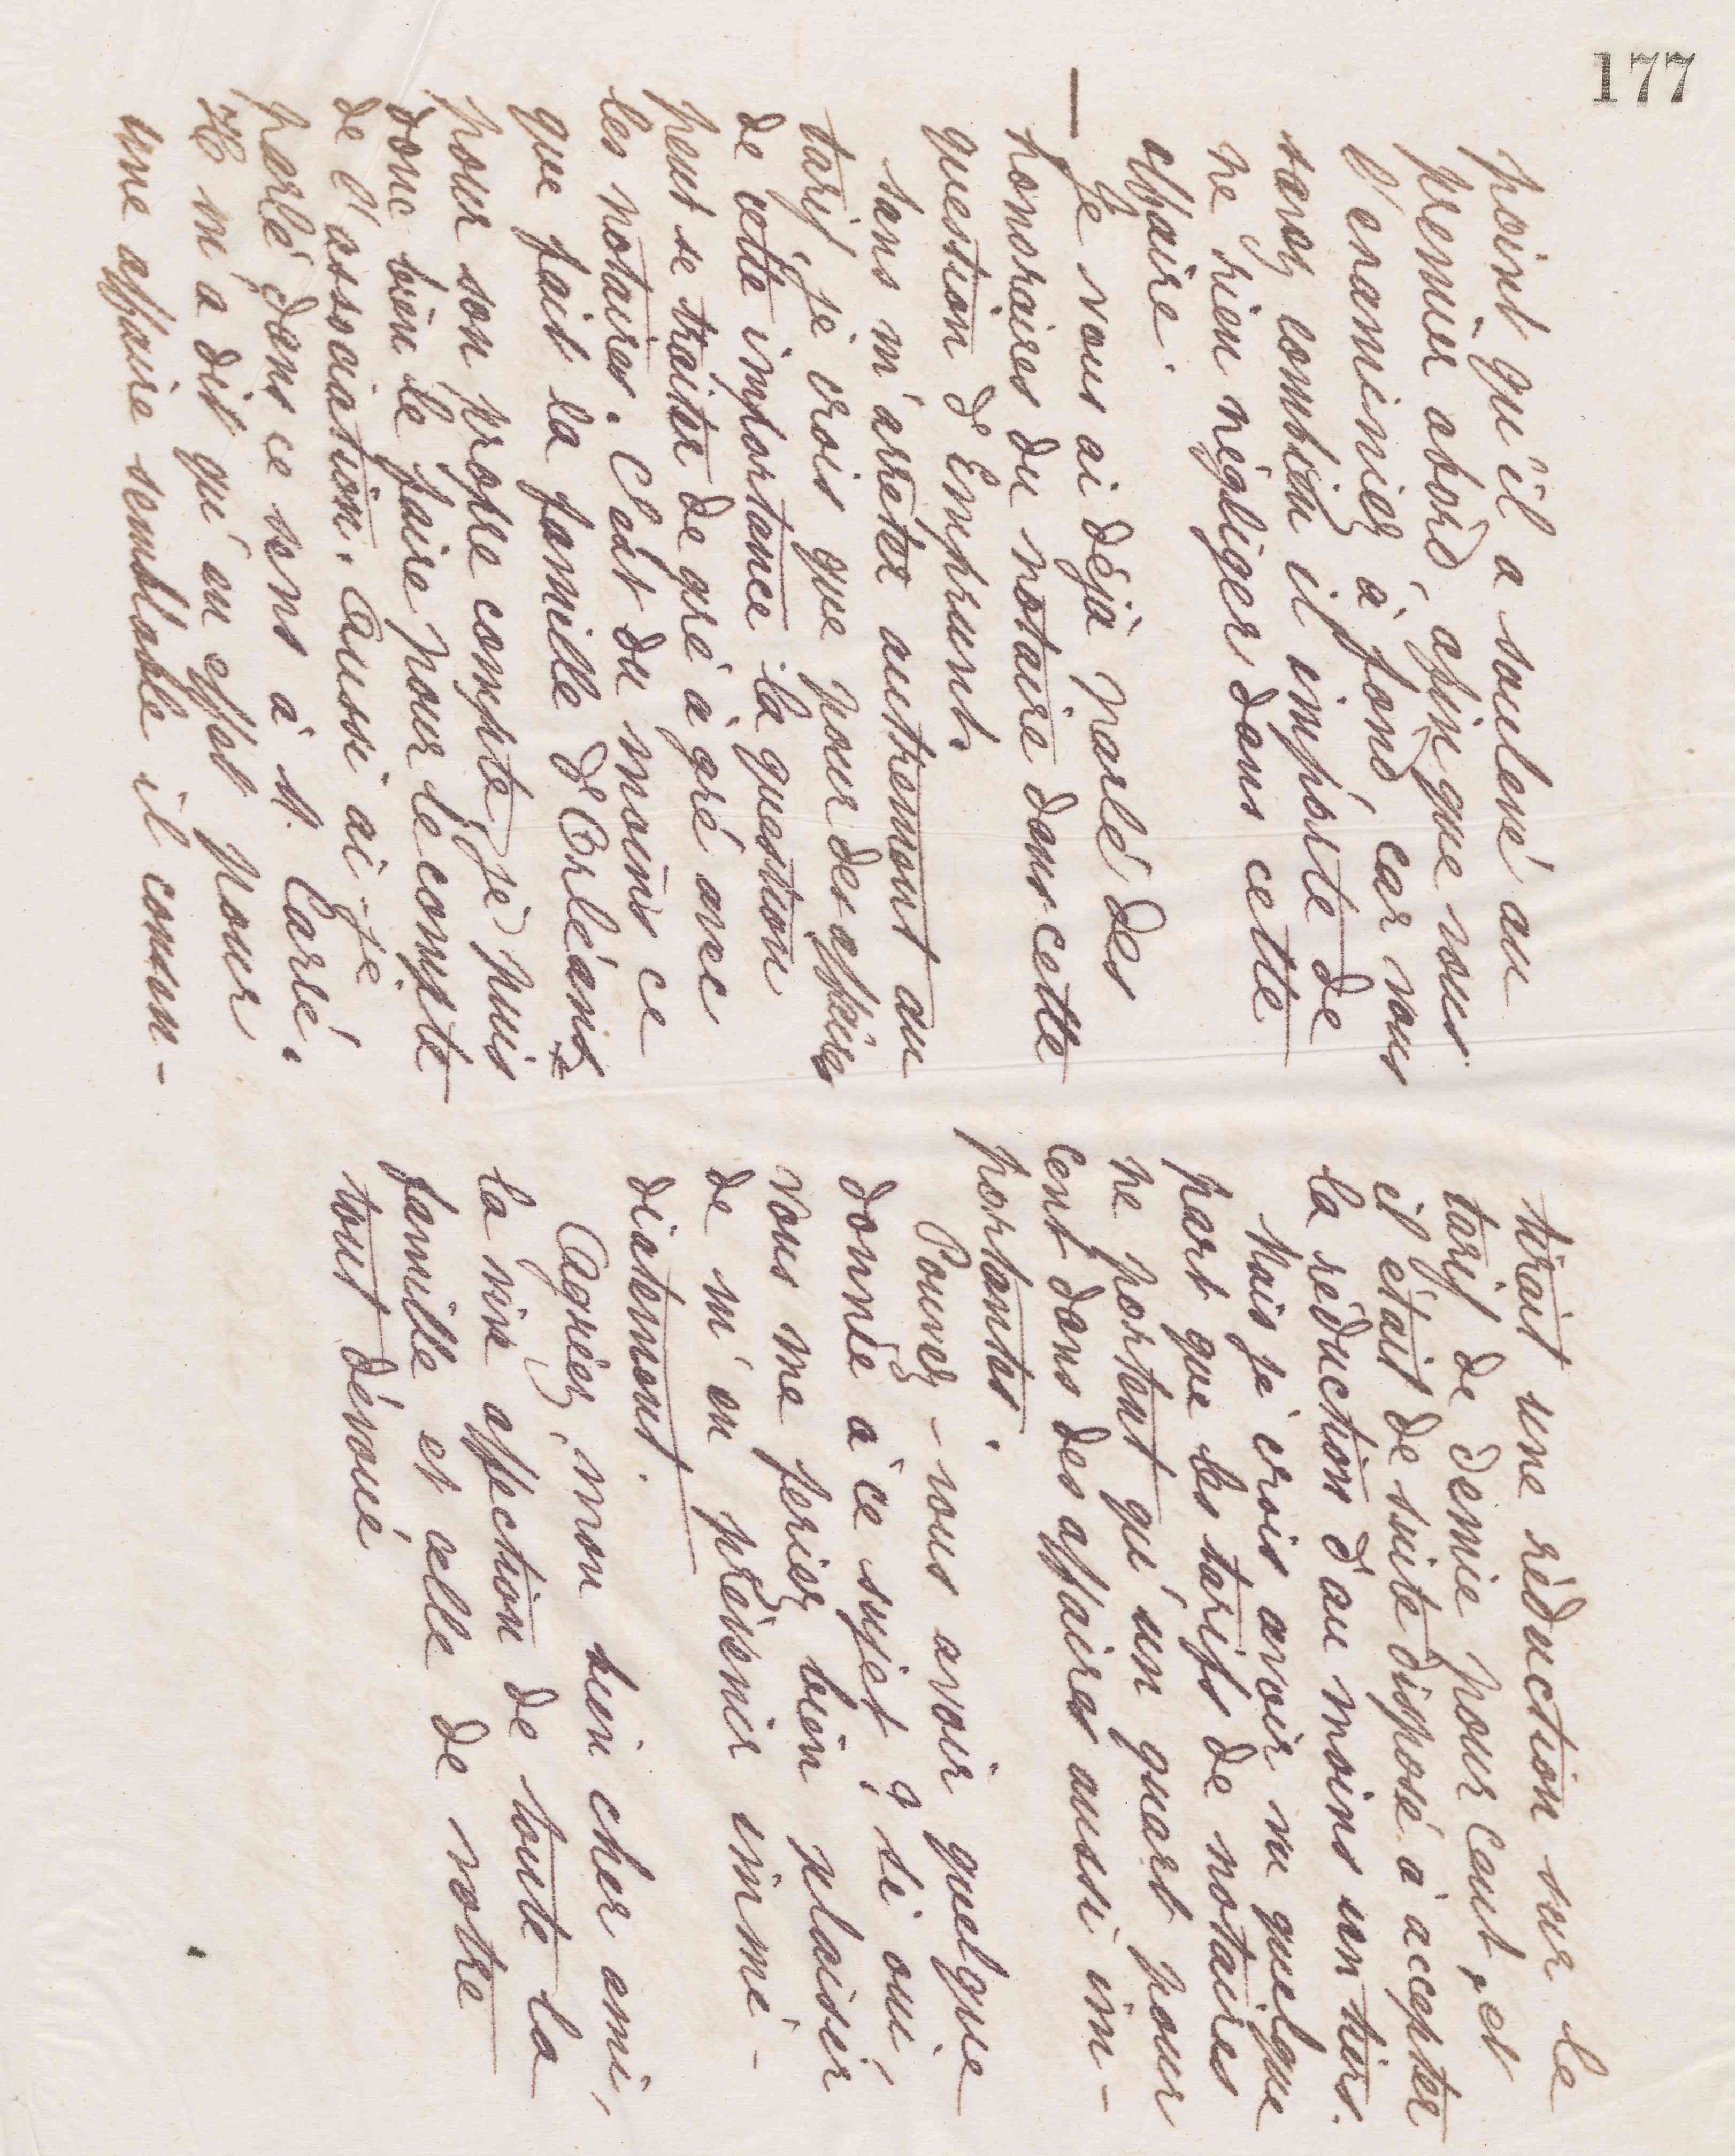 177
point qu'il a soulevé au
premier abord, afin que vous
l'examiniez à fond, car vous
savez combien il importe de
ne rien négliger dans cette
affaire.
— Je vous ai déjà parlé des
honoraires du notaire dans cette
question d'Emprunt.
Sans m'arrêter autrement au
tarif, je crois que pour des affaires
de cette importance la question
peut se traiter de gré à gré avec
les notaires. C'est du moins ce
que fait la famille d'Orléans
pour son propre compte, je puis
donc bien le faire pour le compte
de l'association. Aussi ai-je
parlé dans ce sens à M. Carré.
Il m'a dit qu'en effet pour
une affaire semblable il consen-
tirait une réduction sur le
tarif de demie pour cent, et
il était de suite disposé à accepter
la réduction d'au moins un tiers.
Mais je crois avoir vu quelque
part que les tarifs de notaires
ne portent qu'un quart pour
cent dans des affaires aussi im-
portantes.
Pouvez-vous avoir quelque
donnée à ce sujet ? si oui,
vous me feriez bien plaisir
de m'en prévenir immé-
diatement.
Agréez, mon bien cher ami,
la vive affection de toute la
famille et celle de votre
tout dévoué